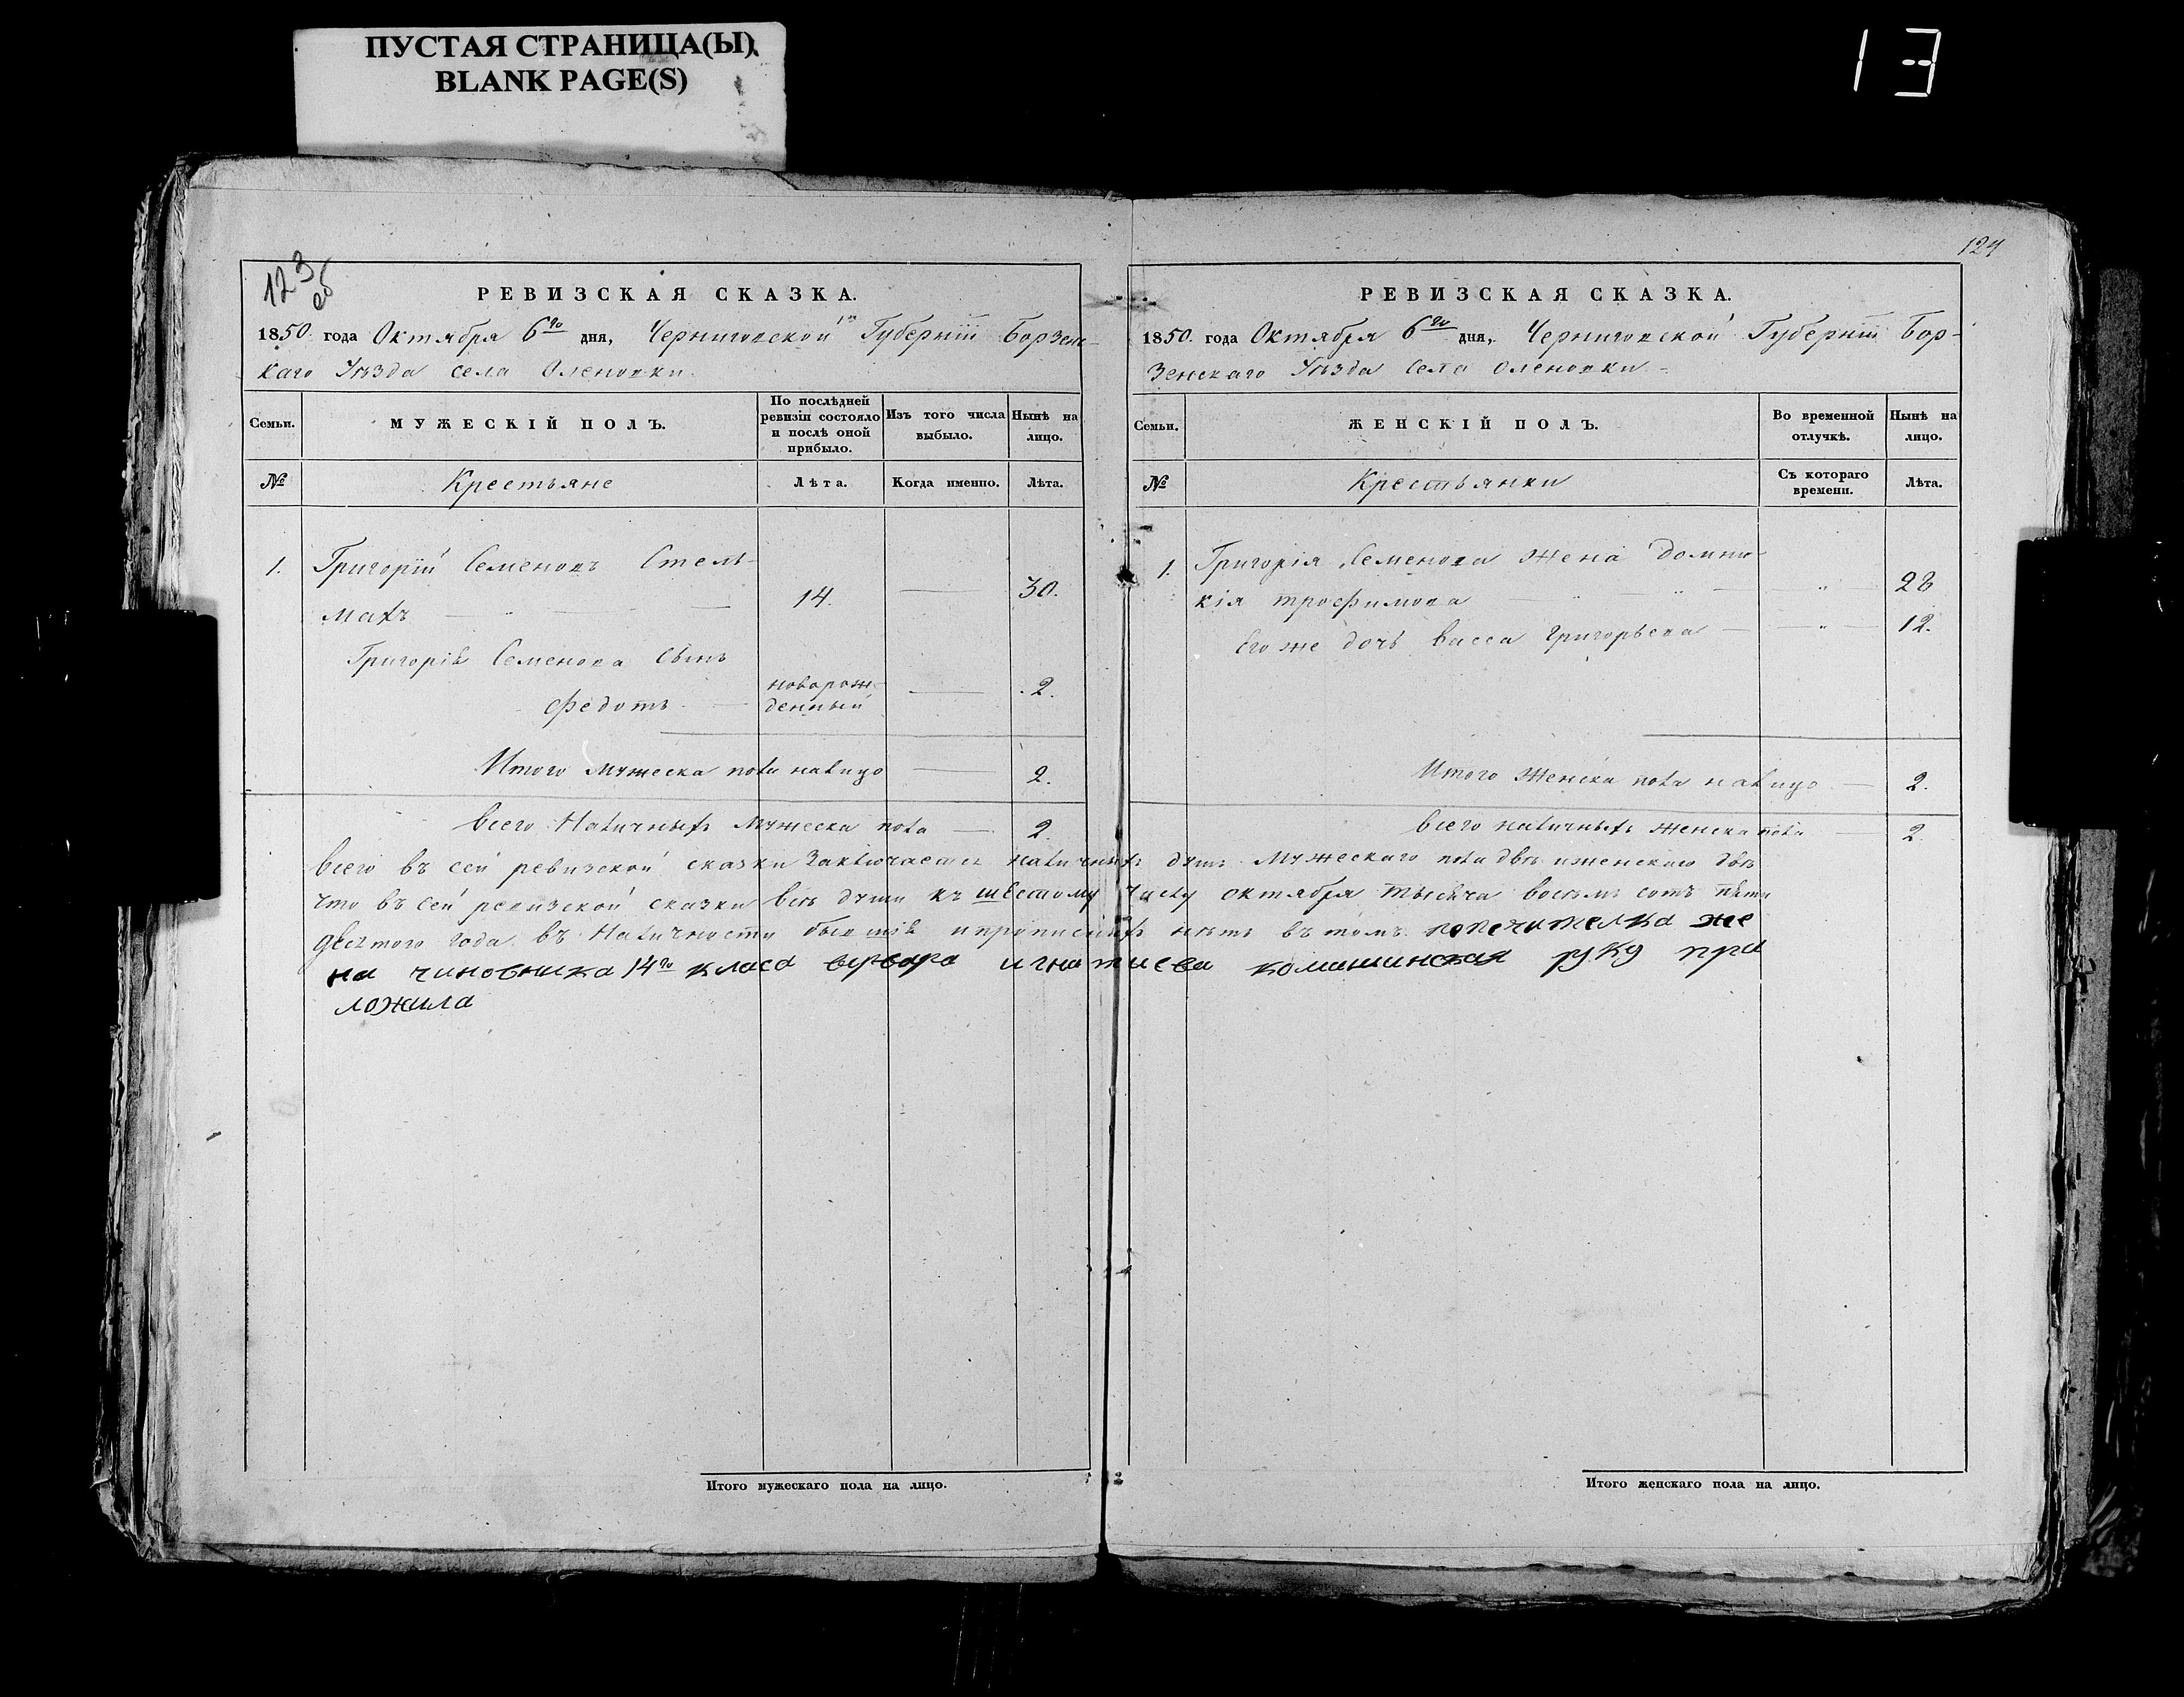 ПУСТАЯ СТРАНИЦА(Ы)
BLANK PAGE(S)
13
123 об
РЕВИЗСКАЯ СКАЗКА.
1850. года Октября 6го дня, Черниговской Губерніи Борзенс-
каго Уѣзда села Оленовки.
Семьи.
МУЖЕСКІЙ ПОЛЪ.
По послѣдней ревизіи состояло и послѣ оной прибыло.
Изъ того числа выбыло.
Нынѣ на лицо.
№
Крестьяне
Лѣта.
Когда именно.
Лѣта.
1. Григорій Семеновъ Стель-
махъ 14. 30.
Григорія Семенова Сынъ
Федотъ новорож-
денный 2.
Итого мужеска пола налицо 2.
Всего Наличныхъ Мужеска пола 2
124
РЕВИЗСКАЯ СКАЗКА.
1850. года Октября 6го дня, Черниговской Губерніи Бор-
зенскаго Уѣзда Села Оленовки
Семьи.
ЖЕНСКІЙ ПОЛЪ.
Во временной отлучкѣ.
Нынѣ на лицо.
№
Крестьянки
Съ котораго времени.
Лѣта.
1. Григорія Семенова Жена Домни-
кія трофимова 28
Его же дочь Васса Григорьева 12.
Итого Женска пола налицо 2.
Всего наличныхъ женска пола 2.
Всего въ сей ревизской сказки Заключается наличныхъ душъ Мужескаго пола двѣ и женскаго двѣ
Что въ сей ревизской сказки всѣ души къ шестому числу октября тысяча восемь сотъ пяти
десятого года въ Наличности бывшія и прописныхъ нѣтъ въ томъ попечителка же
на чиновника 14го класа варвара игнатиева комишинская руку при
ложила
Итого мужескаго пола на лицо.
Итого женскаго пола на лицо.